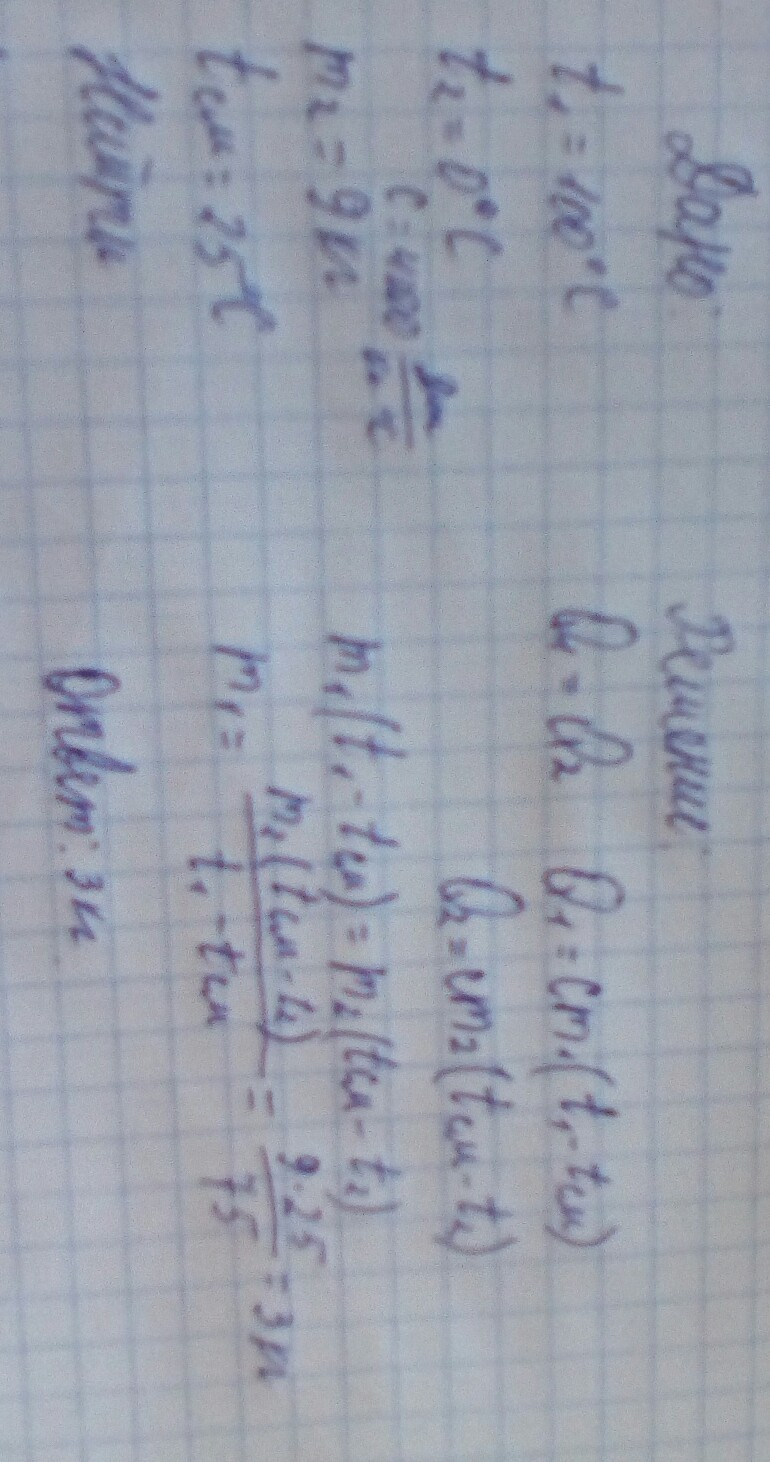 Дано:
t₁ = 100°C
t₂ = 0°C
C = 4200 Дж/кг·°C
m₂ = 9 кг
tсм = 25°C
Найти
Решение:
Q₁ = Q₂ Q₁ = Cm₁(t₁ - tсм)
Q₂ = cm₂(tсм - t₂)
m₁(t₁ - tсм) = m₂(tсм - t₂)
m₁ = m₂(tсм - t₂) / t₁ - tсм = 9·25 / 75 = 3 кг
Ответ: 3 кг